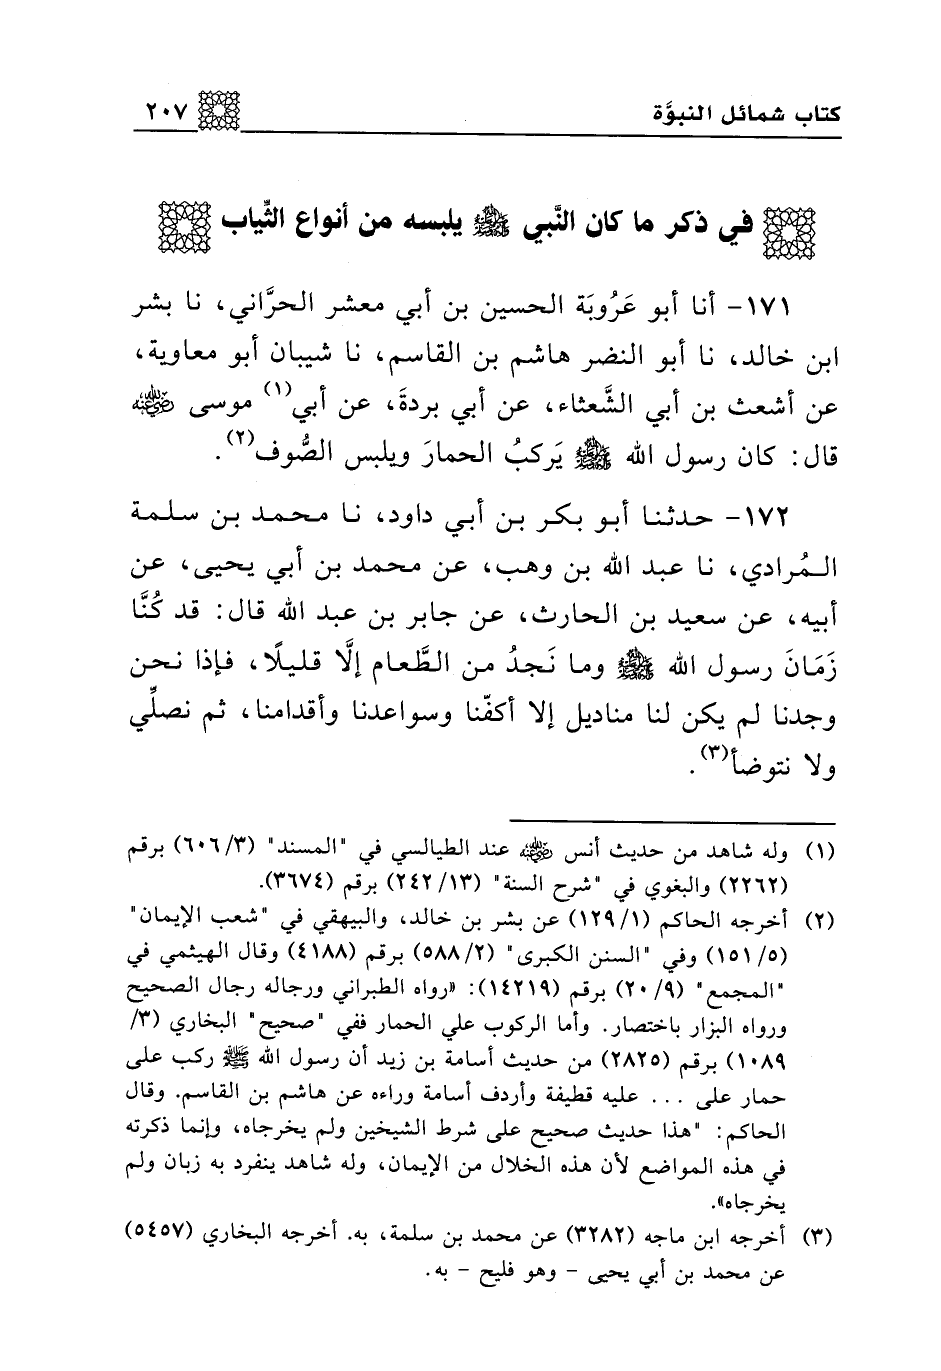 كتاب شمائل النبوَّة ٢٠٧
في ذكر ما كان النَّبي ﷺ يلبسه من أنواع الثِّياب
١٧١- أنا أبو عَرُوبَة الحسين بن أبي معشر الحرَّاني، نا بشر
ابن خالد، نا أبو النضر هاشم بن القاسم، نا شيبان أبو معاوية،
عن أشعث بن أبي الشَّعثاء، عن أبي بردةَ، عن أبي(١) موسى رضي الله عنه
قال: كان رسول الله ﷺ يَركبُ الحمارَ ويلبس الصُّوف(٢).
١٧٢- حدثنا أبو بكر بن أبي داود، نا محمد بن سلمة
المُرادي، نا عبد الله بن وهب، عن محمد بن أبي يحيى، عن
أبيه، عن سعيد بن الحارث، عن جابر بن عبد الله قال: قد كُنَّا
زَمَانَ رسول الله ﷺ وما نَجدُ من الطَّعام إلَّا قليلًا، فإذا نحن
وجدنا لم يكن لنا مناديل إلا أكفّنا وسواعدنا وأقدامنا، ثم نصلِّي
ولا نتوضأ(٣).
(١) وله شاهد من حديث أنس رضي الله عنه عند الطيالسي في "المسند" (٦٠٦/٣) برقم
(٢٢٦٢) والبغوي في "شرح السنة" (٢٤٢/١٣) برقم (٣٦٧٤).
(٢) أخرجه الحاكم (١٢٩/١) عن بشر بن خالد، والبيهقي في "شعب الإيمان"
(١٥١/٥) وفي "السنن الكبرى" (٥٨٨/٢) برقم (٤١٨٨) وقال الهيثمي في
"المجمع" (٢٠/٩) برقم (١٤٢١٩): «رواه الطبراني ورجاله رجال الصحيح
ورواه البزار باختصار. وأما الركوب علي الحمار ففي "صحيح" البخاري (٣/
١٠٨٩) برقم (٢٨٢٥) من حديث أسامة بن زيد أن رسول الله ﷺ ركب على
حمار على ... عليه قطيفة وأردف أسامة وراءه عن هاشم بن القاسم. وقال
الحاكم: "هذا حديث صحيح على شرط الشيخين ولم يخرجاه، وإنما ذكرته
في هذه المواضع لأن هذه الخلال من الإيمان، وله شاهد ينفرد به زبان ولم
يخرجاه».
(٣) أخرجه ابن ماجه (٣٢٨٢) عن محمد بن سلمة، به. أخرجه البخاري (٥٤٥٧)
عن محمد بن أبي يحيى - وهو فليح - به.